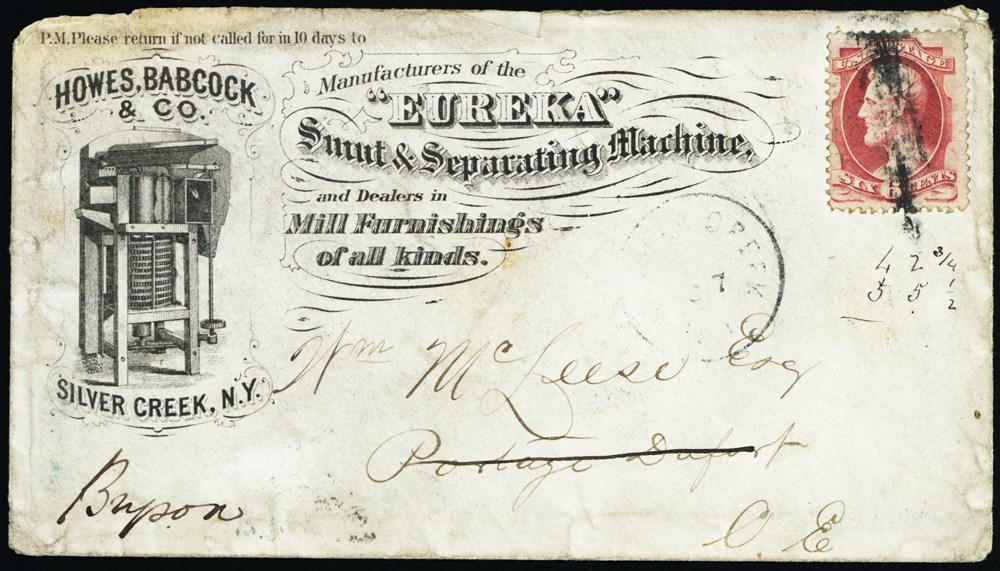 P.M. Please return if not called for in 10 days to
HOWES, BABCOCK
& CO.
SILVER CREEK, N.Y.
Manufacturers of the
"EUREKA"
Smut & Separating Machine,
and Dealers in
Mill Furnishings
of all kinds.
U.S. POSTAGE
SIX 6 CENTS
CREEK
7
42 3/4
55 1/2
Wm McLeese Esq
Portage Dufort
C. E
Bryson